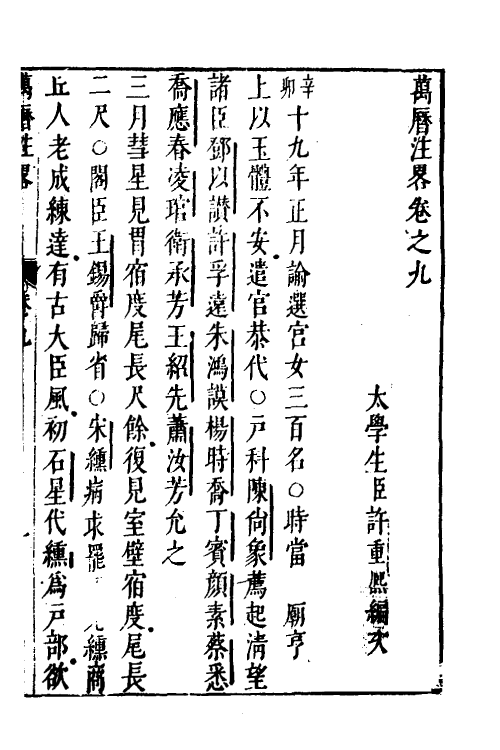 萬曆注畧卷之九
太學生臣許重熈編次
辛卯十九年正月諭選宫女三百名○時當 廟亨
上以玉體不安遣官恭代○戸科陳尙象薦起淸望
諸臣鄧以讃許孚遠朱鴻謨楊時喬丁賓顔素蔡悉
喬應春凌琯衛承芳王紹先蕭汝芳允之
三月彗星見胃宿度尾長尺餘復見室壁宿度尾長
二尺○閣臣王錫爵歸省○宋纁病求罷 纁商
丘人老成練達有古大臣風初石星代纁爲戸部欲
萬曆注畧 卷九 一